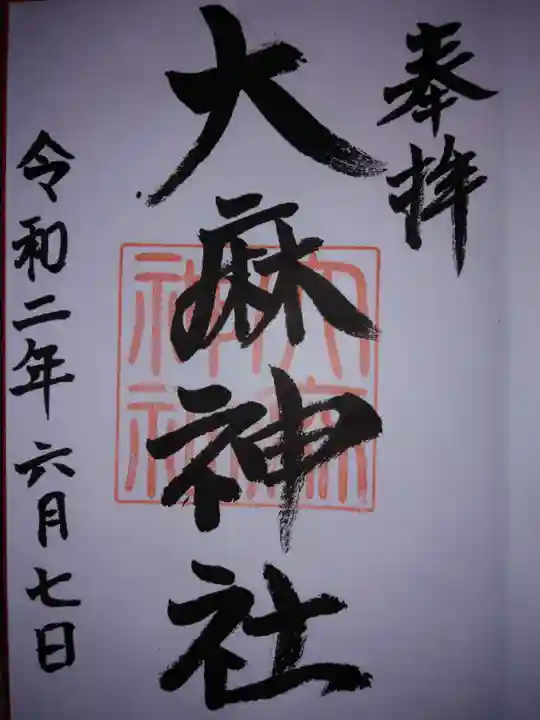 奉拝
大麻神社
大麻神社
令和二年六月七日